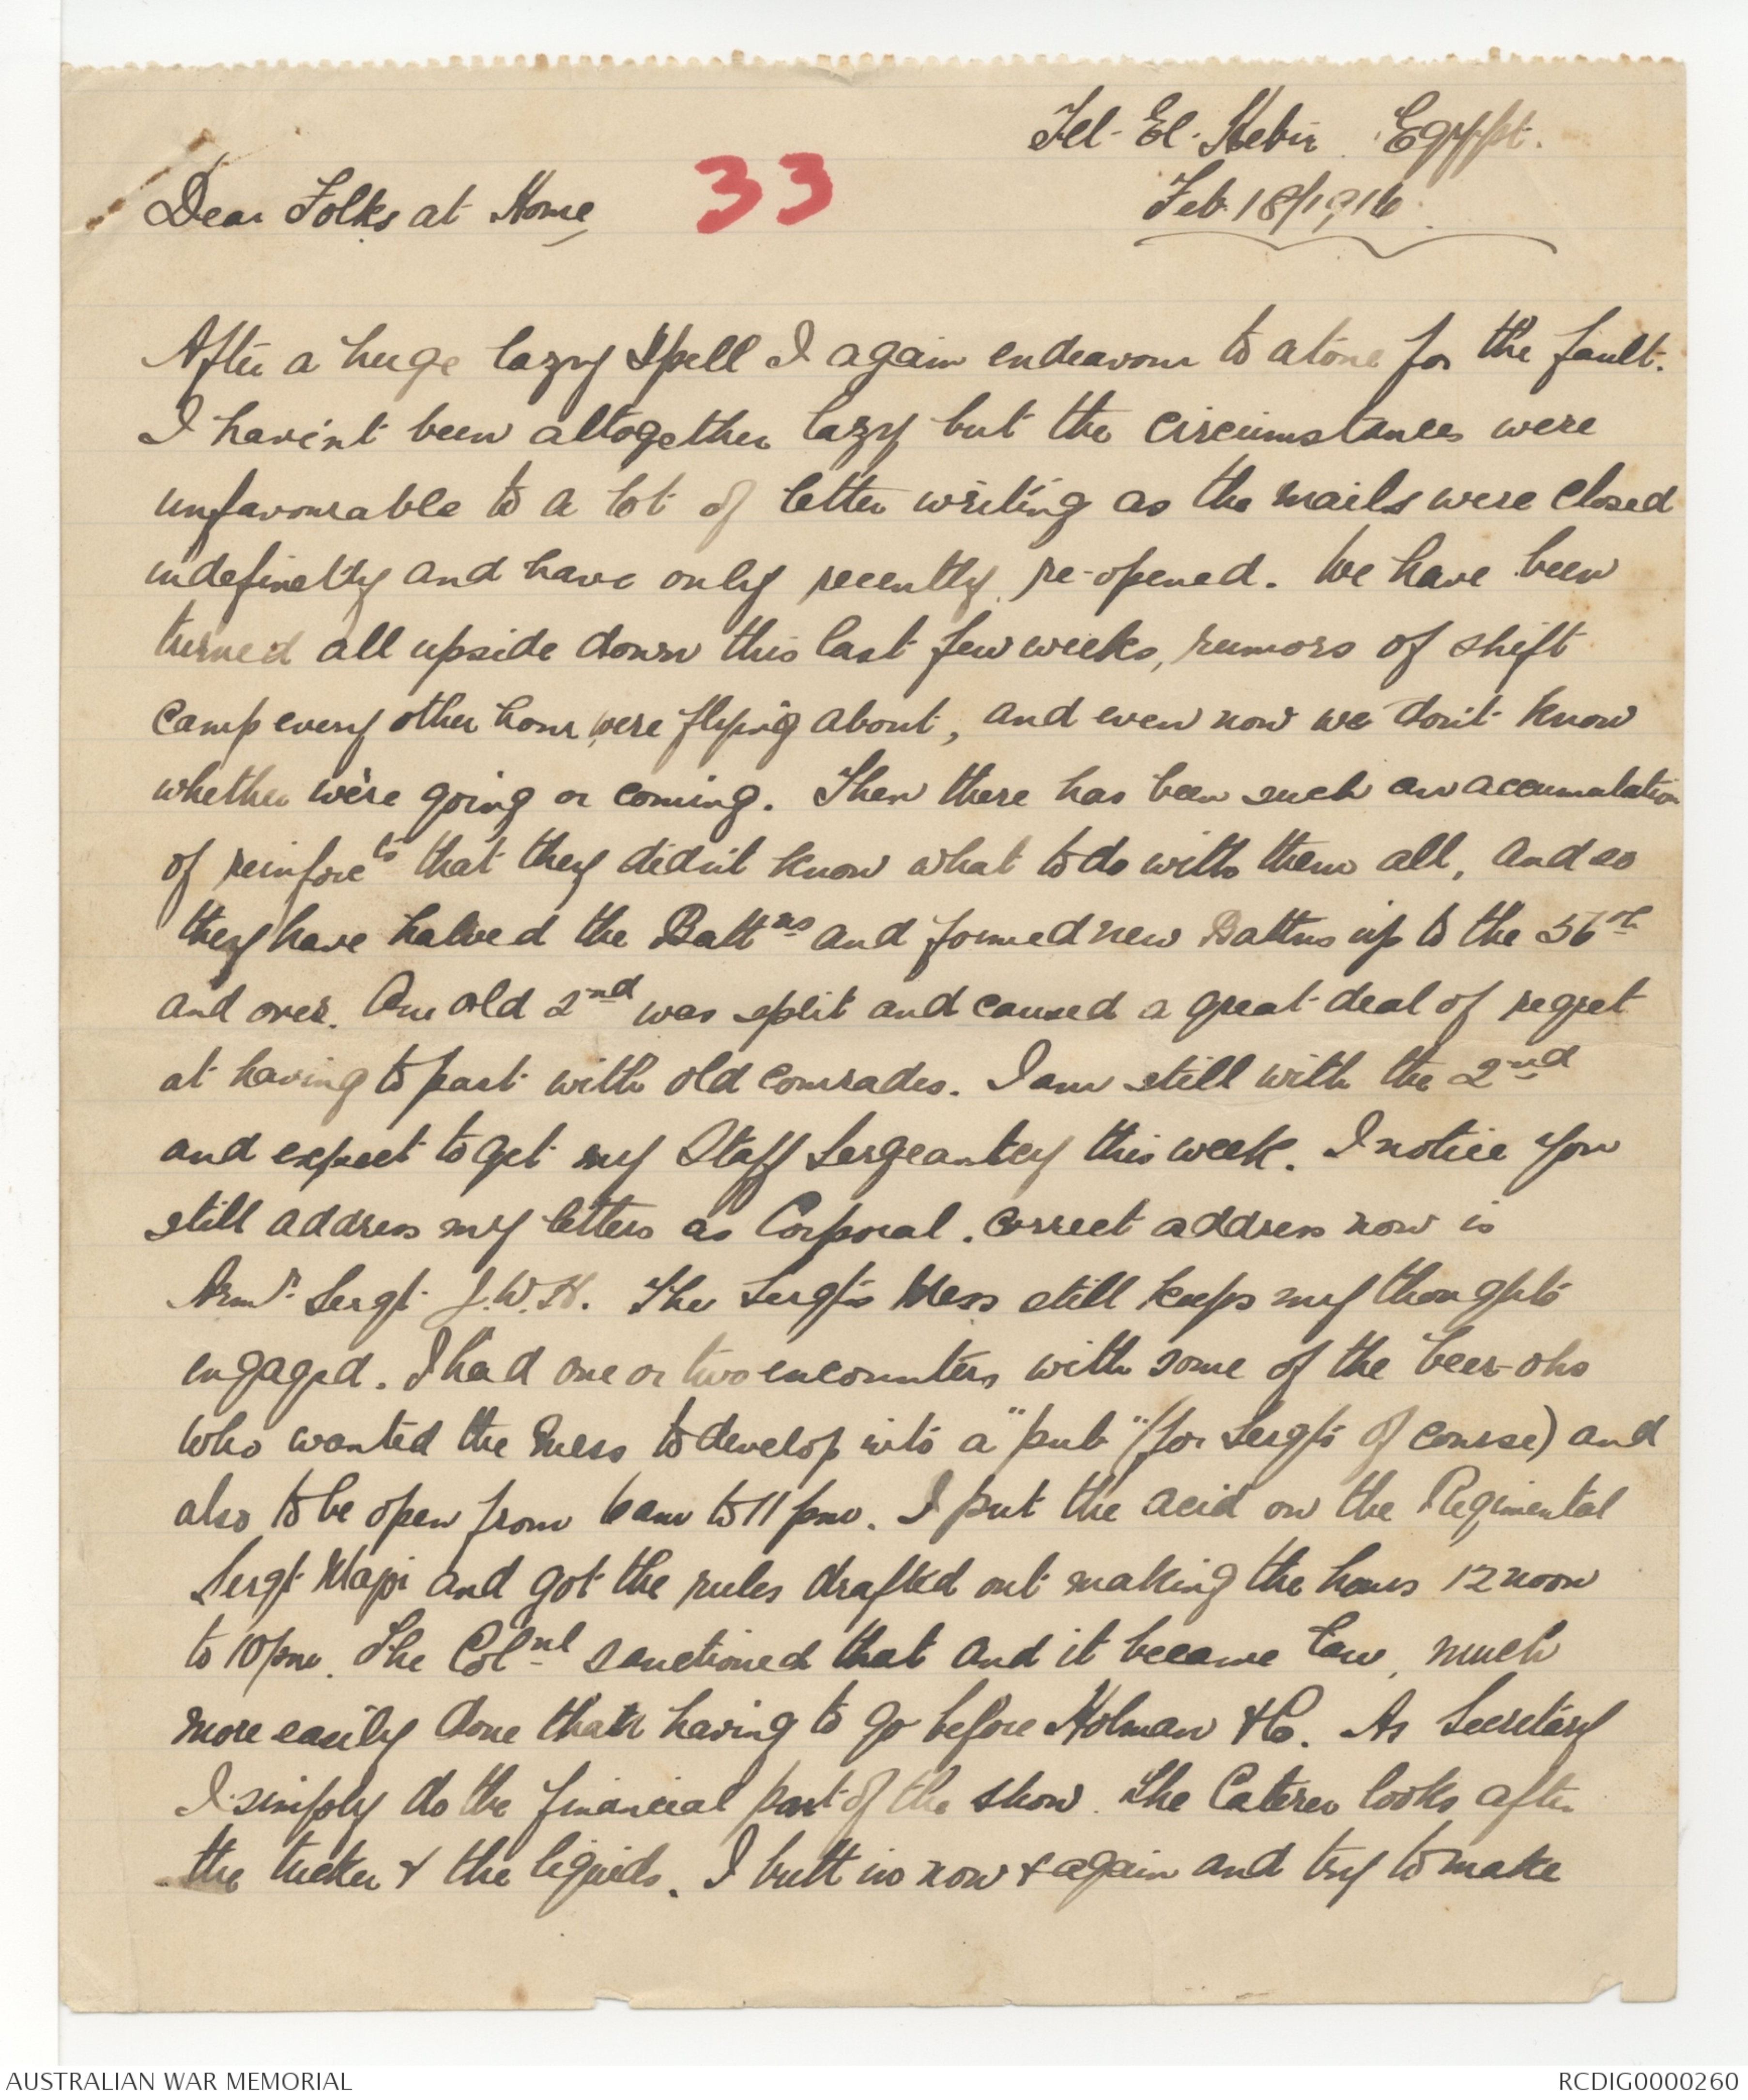 Tel-El-Kebir. Egypt.
Feb. 18/1916.
Dear Folks at Home
33
After a huge lazy spell I again endeavour to atone for the fault.
I havn't been altogether lazy but the circumstances were
unfavourable to a lot of letter writing as the mails were closed
indefinetly and have only recently re-opened. We have been
turned all upside down this last few weeks, rumors of shift
camp every other hour were flying about, and even now we don't know
whether we're going or coming. Then there has been such an accumulation
of reinforcts that they didn't know what to do with them all, and so
they have halved the Battns and formed new Battns up to the 56th
and over. Our old 2nd was split and caused a great deal of regret
at having to part with old comrades. I am still with the 2nd
and expect to get my Staff Sergeantcy this week. I notice you
still address my letters as Corporal. correct address now is
Armr. Sergt. J.W.H. The Sergt's Mess still keeps my thoughts
engaged. I had one or two encounters with some of the beer-ohs
who wanted the mess to develop into a "pub" (for Sergts of course) and
also to be open from 6 am to 11 pm. I put the acid on the Regimental
Sergt Major and got the rules drafted out making the hours 12 noon
to 10 pm. The Colnl sanctioned that and it became law, much
more easily done than having to go before Holman & Co. As Secretary
I simply do the financial part of the show. The Caterer looks after
the tucker & the liquids. I butt in now & again and try to make
AUSTRALIAN WAR MEMORIAL
RCDIG0000260